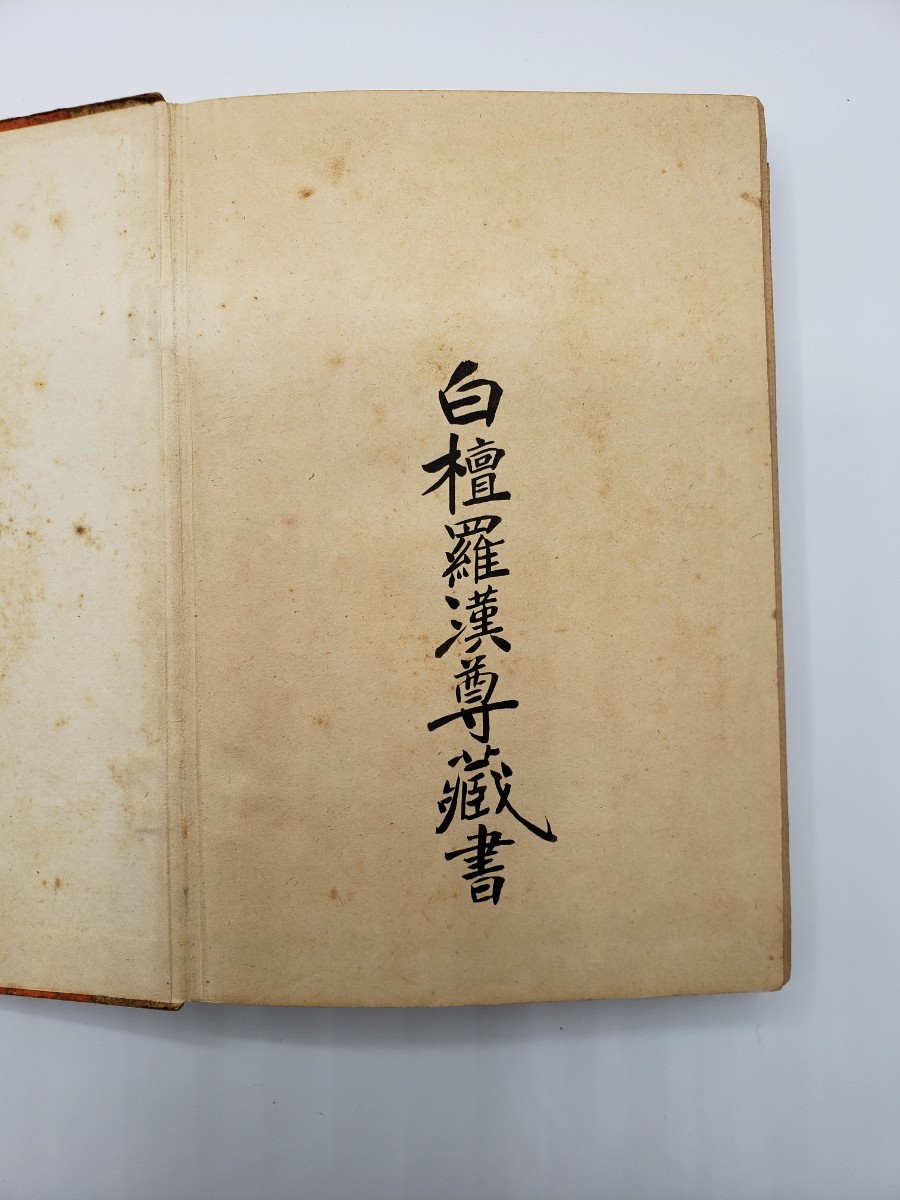 白檀羅漢尊藏書